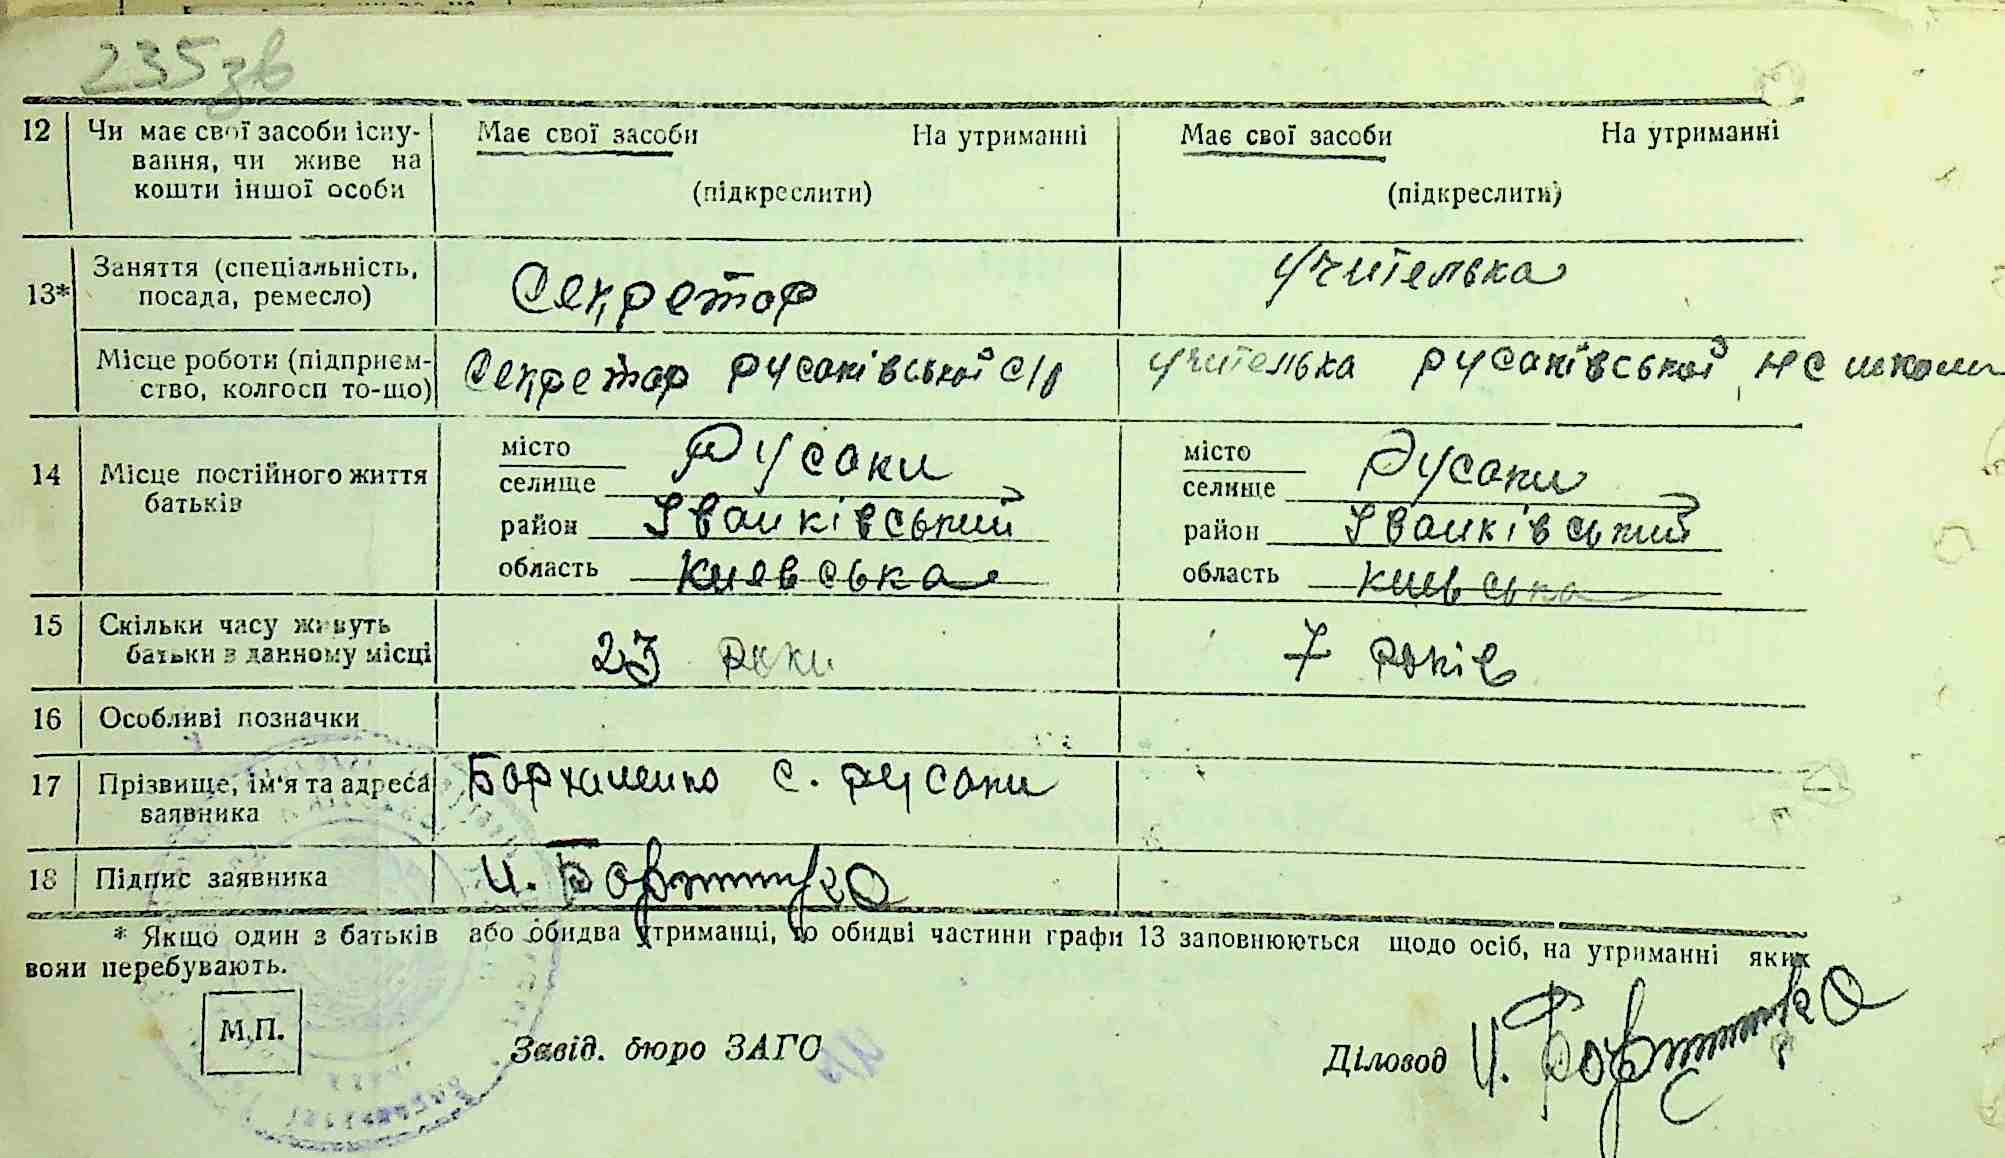 235 зв
12 Чи має свої засоби існу- Має свої засоби На утриманні Має свої засоби На утриманні
вання, чи живе на
кошти іншої особи (підкреслити) (підкреслити)
13* Заняття (спеціальність, посада, ремесло) Секретар учителька
Місце роботи (підприєм- Секретар Русаківської с/р учителька Русаківської НС школи
ство, колгосп то-що)
14 Місце постійного життя батьків
місто Русаки місто Русаки
селище селище
район Іванківський район Іванківський
область Киевська область Київська
15 Скільки часу живуть
батьки в данному місці 23 роки 7 років
16 Особливі позначки
17 Прізвище, ім'я та адреса с. Русаки
заявника
18 Підпис заявника И.
* Якщо один з батьків або обидва утриманці, то обидві частини графи 13 заповнюються щодо осіб, на утриманні яких
вони перебувають.
М.П. Завід. бюро ЗАГС Діловод И.